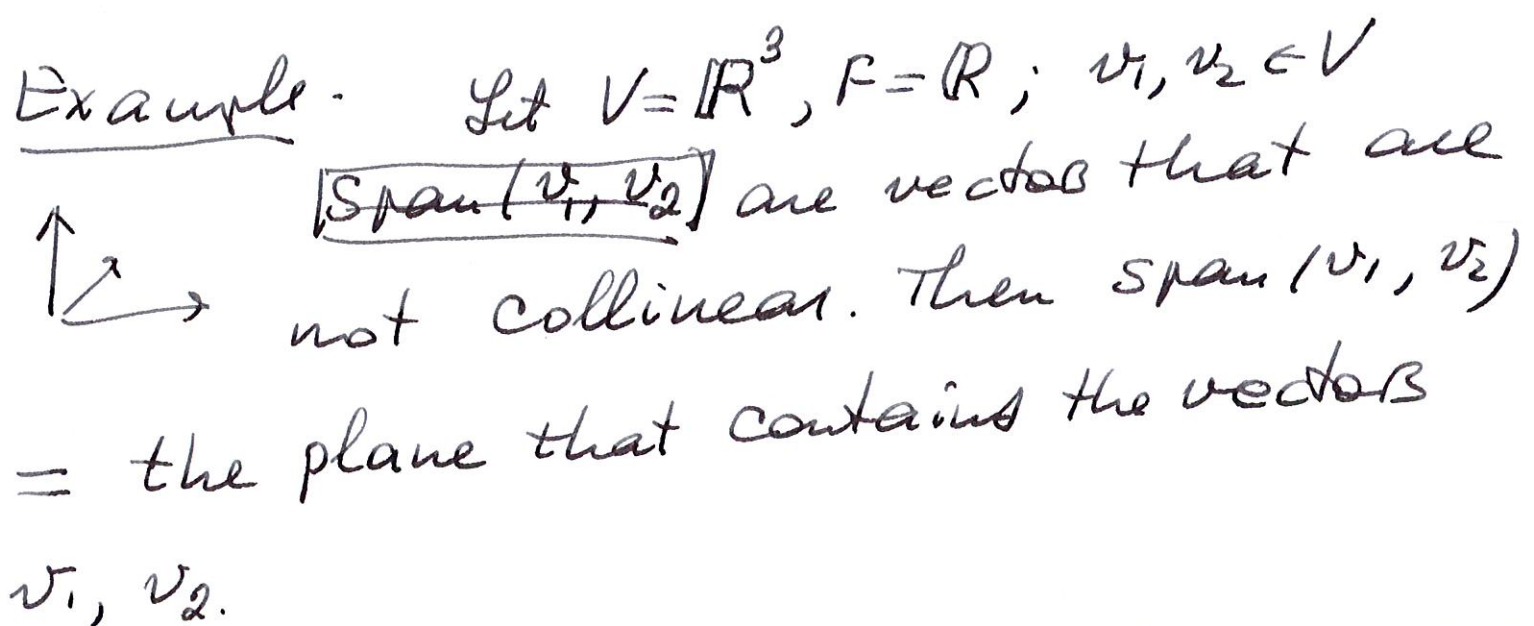 Example. Let V = ℝ³, F = ℝ; v₁, v₂ ∈ V
Span(v₁, v₂) are vectors that are
not collinear. Then span(v₁, v₂)
= the plane that contains the vectors
v₁, v₂.